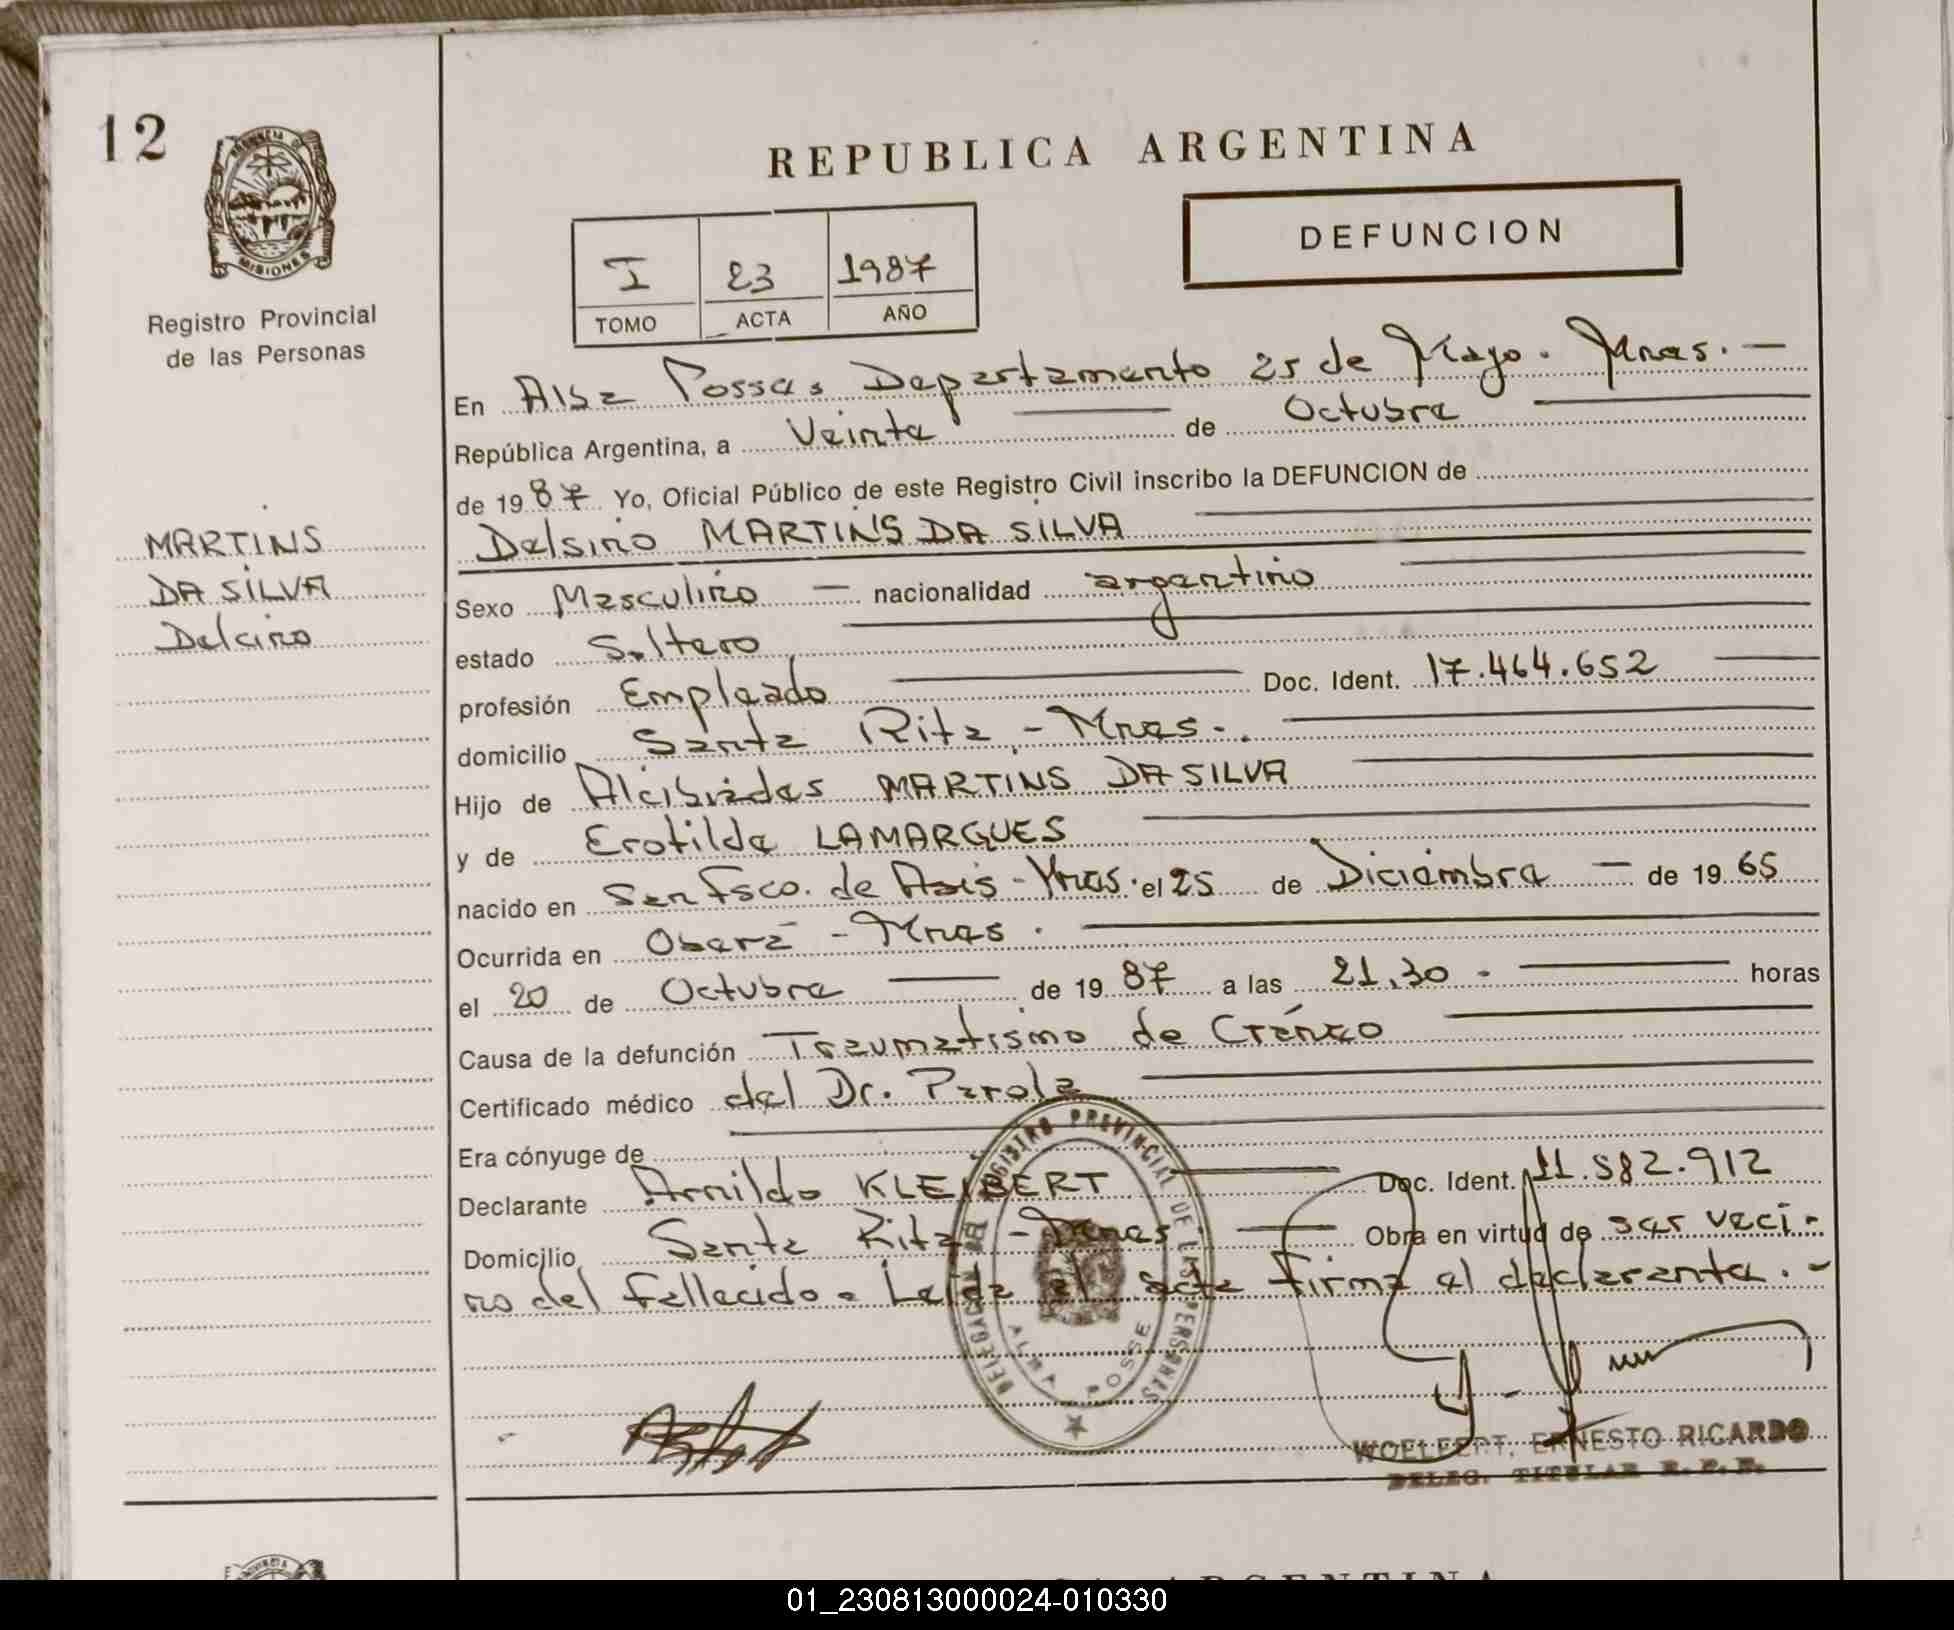 12
PROVINCIA DE
MISIONES
Registro Provincial
de las Personas
MARTINS
DA SILVA
Delciro
REPUBLICA ARGENTINA
DEFUNCION
I 23 1987
TOMO ACTA AÑO
En Alba Posse, Departamento 25 de Mayo. Mnes. —
República Argentina, a Veinte — de Octubre —
de 1987 Yo, Oficial Público de este Registro Civil inscribo la DEFUNCION de
Delsiro MARTINS DA SILVA —
Sexo Masculino — nacionalidad argentino —
estado Soltero —
profesión Empleado — Doc. Ident. 17.464.652 —
domicilio Santa Rita - Mnes. —
Hijo de Alcibiades MARTINS DA SILVA —
y de Erotilde LAMARGUES —
nacido en San Fsco. de Asis - Mnes. el 25 de Diciembre — de 1965
Ocurrida en Oberá - Mnes. —
el 20 de Octubre — de 1987 a las 21,30 - — horas
Causa de la defunción Traumatismo de Cráneo —
Certificado médico del Dr. Parola —
Era cónyuge de —
Declarante Arnildo KLEIBERT — Doc. Ident. 11.582.912
Domicilio Santa Rita - Mnes — Obra en virtud de ser veci-
no del fallecido. Leída el acta firma el declarante. -
DELEGACION DEL REGISTRO PROVINCIAL DE LAS PERSONAS
ALBA POSSE
WOELFERT, ERNESTO RICARDO
DELEG. TITULAR R.P.P.
PROVINCIA
REPUBLICA ARGENTINA
01_230813000024-010330